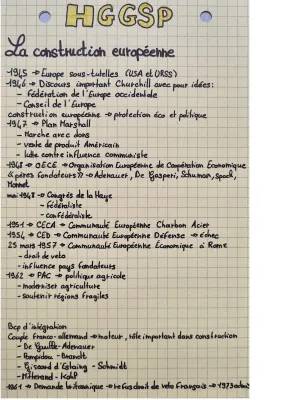 HGGSP
La construction européenne
-1945 → Europe sous-tutelles (USA et URSS)
-1946 → Discours important Churchill avec pour idées:
- fédération de l'Europe occidentale
- Conseil de l'Europe
construction européenne → protection éco et politique
-1947 → Plan Marshall
- Marche avec dons
- vente de produit Américain
- lutte contre influence communiste
-1948 → OECE → Organisation Européenne de Coopération Économique
"pères fondateurs" → Adenauer, De Gasperi, Schuman, Spaak,
Monnet
mai 1948 → Congrès de la Haye
- fédéraliste
- confédéraliste
-1951 → CECA → Communauté Européenne Charbon Acier
-1954 → CED → Communauté Européenne Défense → échec
25 mars 1957 → Communauté Européenne Économique à Rome
- droit de veto
- influence pays fondateurs
-1962 → PAC → politique agricole
- moderniser agriculture
- soutenir régions fragiles
Bcp d'intégration
Couple Franco-allemand → moteur, rôle important dans construction
- De Gaulle-Adenauer
- Pompidou - Brandt
- Giscard d'Estaing - Schmidt
- Mitterand - Kohl
-1961 → Demande britannique → refus droit de veto Français → 1973